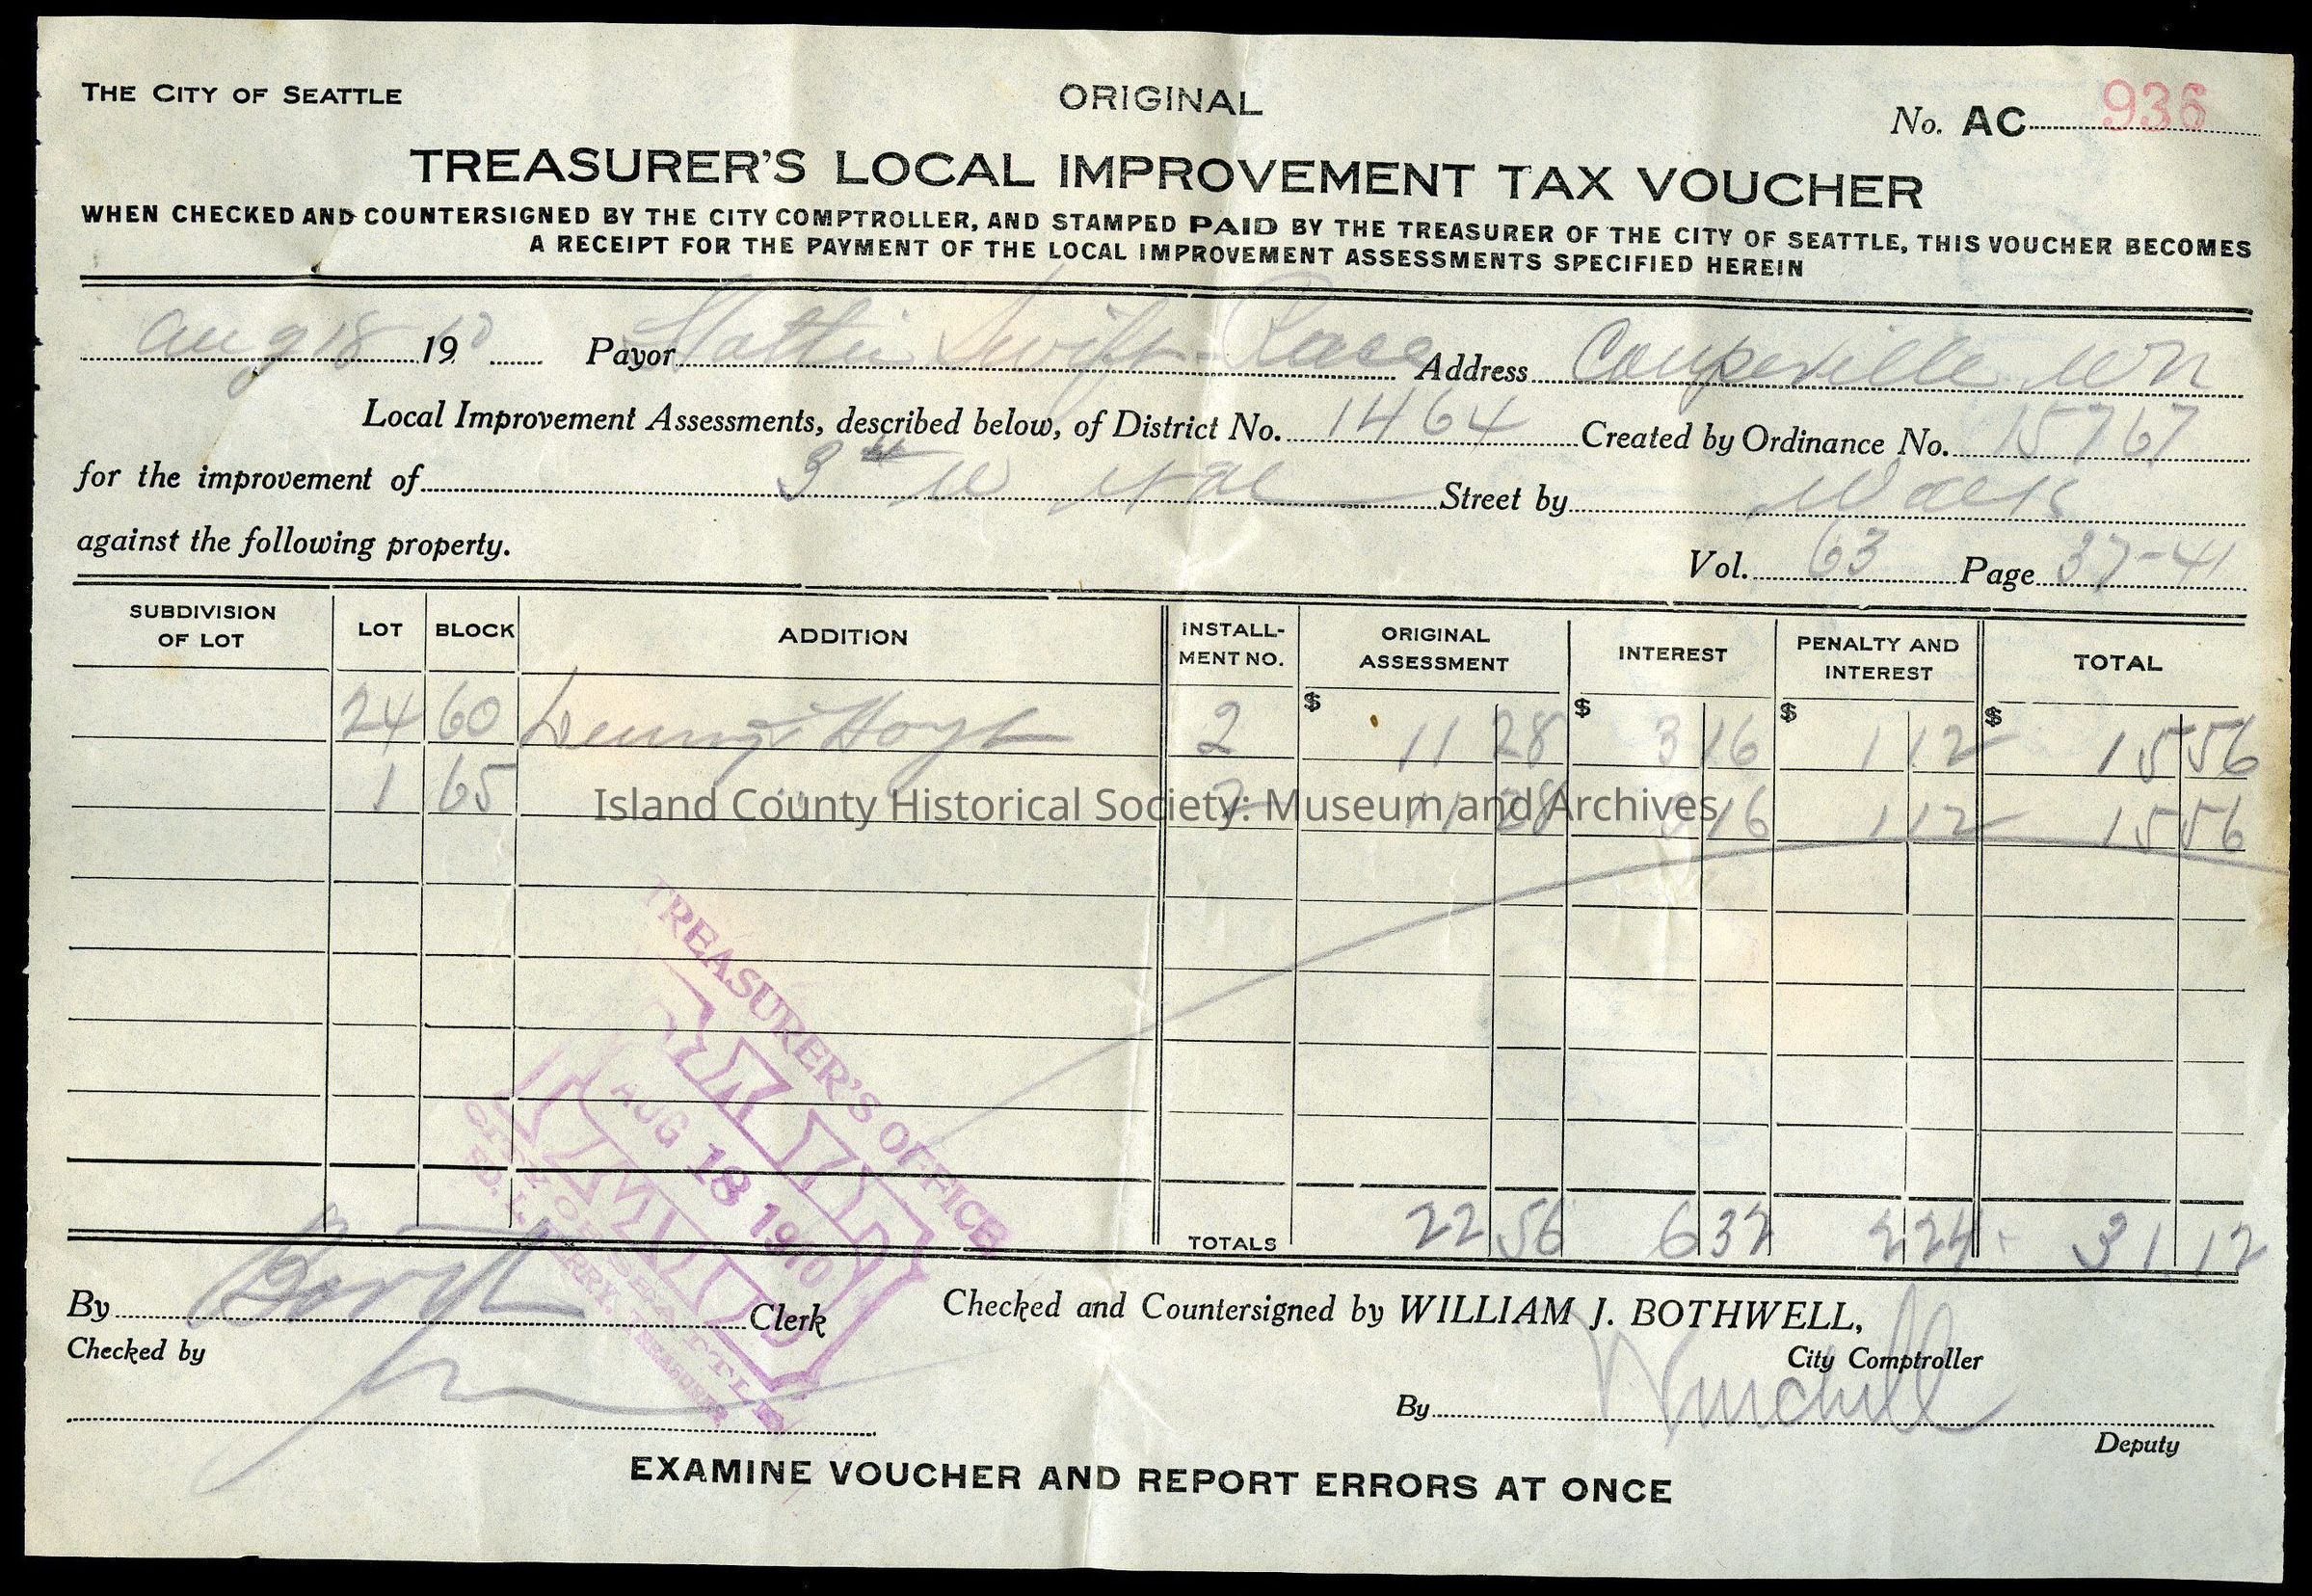 THE CITY OF SEATTLE
ORIGINAL
No. AC 936
TREASURER'S LOCAL IMPROVEMENT TAX VOUCHER
WHEN CHECKED AND COUNTERSIGNED BY THE CITY COMPTROLLER, AND STAMPED PAID BY THE TREASURER OF THE CITY OF SEATTLE, THIS VOUCHER BECOMES
A RECEIPT FOR THE PAYMENT OF THE LOCAL IMPROVEMENT ASSESSMENTS SPECIFIED HEREIN
Aug 18 1910 Payor Hattie Swift Race Address Coupeville Wn
Local Improvement Assessments, described below, of District No. 1464 Created by Ordinance No. 15767
for the improvement of 3rd W et al Street by Walks
against the following property.
Vol. 63 Page 37-41
SUBDIVISION OF LOT LOT BLOCK ADDITION INSTALL-MENT NO. ORIGINAL ASSESSMENT INTEREST PENALTY AND INTEREST TOTAL
24 60 Denny & Hoyt 2 $ 11 28 $ 3 16 $ 1 12 $ 15 56
1 65 2 11 28 3 16 1 12 15 56
Island County Historical Society: Museum and Archives
TREASURER'S OFFICE
PAID
AUG 18 1910
LIMITED
CITY OF SEATTLE
ED. L. TERRY, TREASURER
TOTALS 22 56 6 32 2 24 31 12
By Clerk
Checked and Countersigned by WILLIAM J. BOTHWELL,
Checked by
City Comptroller
By
Deputy
EXAMINE VOUCHER AND REPORT ERRORS AT ONCE